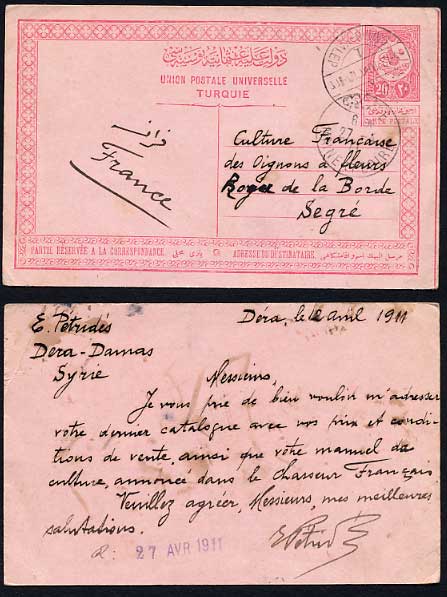 دولت عليه عثمانيه پوسته سى
UNION POSTALE UNIVERSELLE
TURQUIE
20
فرانسه
France
Culture Française
des Oignons à fleurs
de la Borde
Segré
PARTIE RÉSERVÉE A LA CORRESPONDANCE.
ADRESSE DU DESTINATAIRE.
E. Petridés
Dera-Damas
Syrie
Déra, le 12 avril 1911
Messieurs,
Je vous prie de bien vouloir m'adresser
votre dernier catalogue avec vos prix et condi-
tions de vente, ainsi que votre manuel de
culture, annoncé dans le Chasseur Français
Veuillez agréer, Messieurs, mes meilleures
salutations.
27 AVR 1911